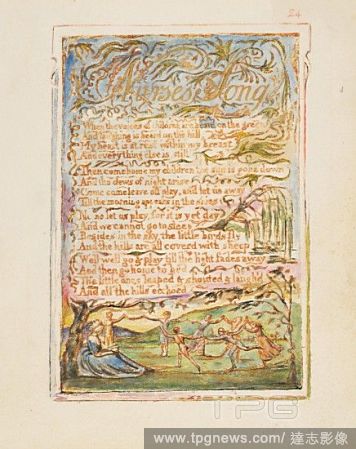 24
Nurse's Song
When the voices of children are heard on the green
And laughing is heard on the hill
My heart is at rest within my breast
And every thing else is still
Then come home my children the sun is gone down
And the dews of night arise
Come come leave off play, and let us away
Till the morning appears in the skies
No no let us play, for it is yet day
And we cannot go to sleep
Besides in the sky, the little birds fly
And the hills are all coverd with sheep
Well well go & play till the light fades away
And then go home to bed
The little ones leaped & shouted & laugh'd
And all the hills ecchoed
TPG
www.tpgnews.com/ 達志影像